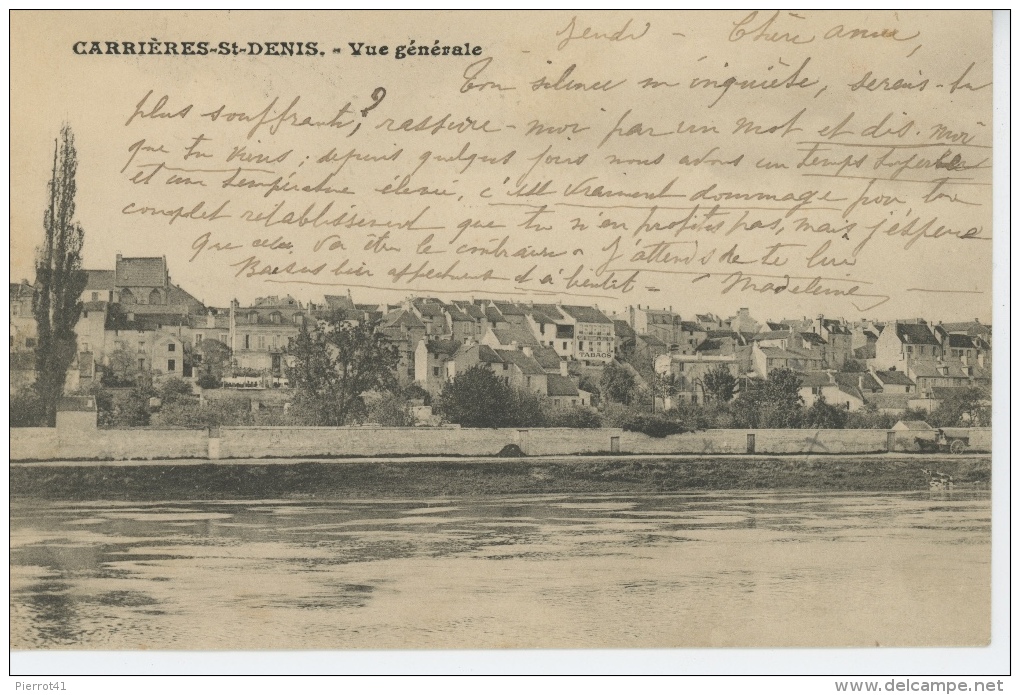 CARRIÈRES-St-DENIS. - Vue générale
Jeudi - Chère amie,
Ton silence m'inquiète, serais-tu
plus souffrante? rassure-moi par un mot et dis-moi
que tu viens; depuis quelques jours nous avons un temps superbe
et une température élevée, c'est vraiment dommage pour ton
complet rétablissement que tu n'en profites pas, mais j'espère
que cela va être le
J'attends de te lire
Baisers bien affectueux et à bientôt -
Madeleine
TABACS
Pierrot41
www.delcampe.net